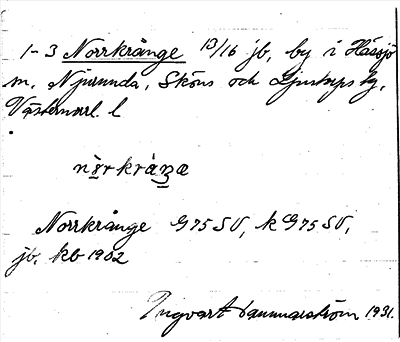 1-3 Norrkrånge 13/16 jb, by i Hässjö
sn, Njurunda, Sköns och Ljustorps tg,
Västernorrl. l
Norrkrånge G75 SV, k G75 SV,
jb, kb 1902
Ingvart Hammarström 1931.